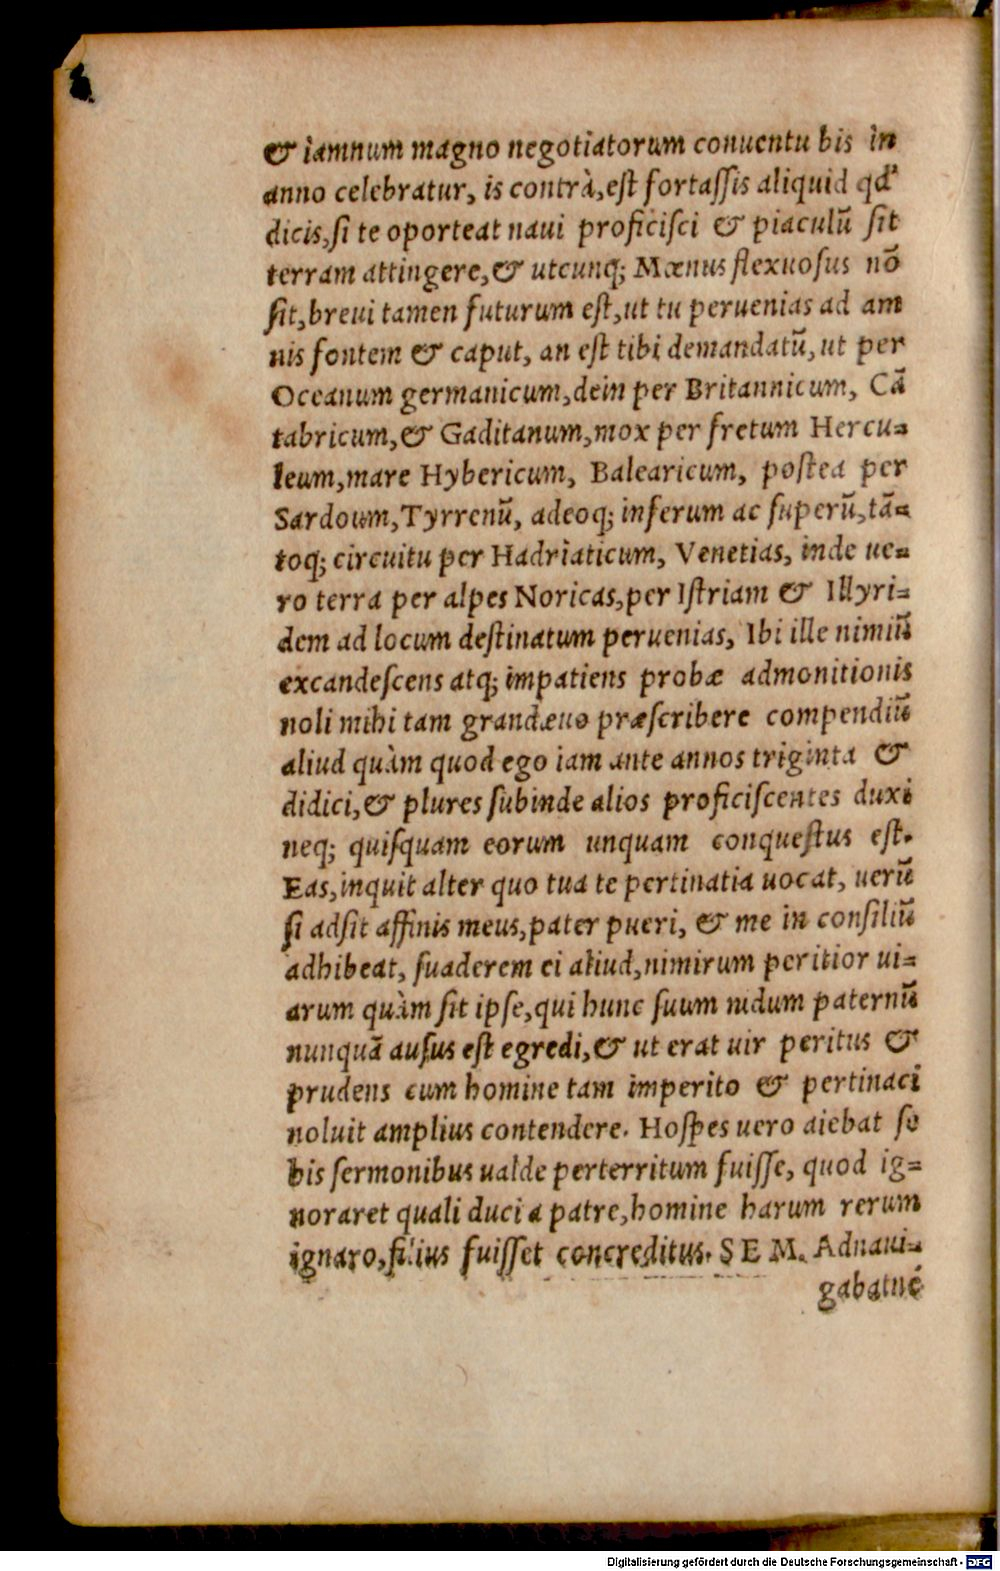 & iamnum magno negotiatorum conuentu bis in
anno celebratur, is contrà,est fortassis aliquid qd'
dicis,si te oporteat naui proficisci & piaculũ sit
terram attingere,& utcunq; Mœnus flexuosus nõ
sit,breui tamen futurum est,ut tu peruenias ad am
nis fontem & caput, an est tibi demandatũ,ut per
Oceanum germanicum,dein per Britannicum, Cã
tabricum,& Gaditanum,mox per fretum Hercu-
leum,mare Hybericum, Balearicum, postea per
Sardoum,Tyrrenũ, adeoq; inferum ac superũ,tã-
toq; circuitu per Hadriaticum, Venetias, inde ue-
ro terra per alpes Noricas,per Istriam & Illyri-
dem ad locum destinatum peruenias, Ibi ille nimiũ
excandescens atq; impatiens probæ admonitionis
noli mihi tam grandæuo præscribere compendiũ
aliud quàm quod ego iam ante annos triginta &
didici,& plures subinde alios proficiscentes duxi
neq; quisquam eorum unquam conquestus est.
Eas,inquit alter quo tua te pertinatia uocat, uerũ
si adsit affinis meus,pater pueri, & me in consiliũ
adhibeat, suaderem ei aliud,nimirum peritior ui-
arum quàm sit ipse,qui hunc suum nidum paternũ
nunquã ausus est egredi,& ut erat uir peritus &
prudens cum homine tam imperito & pertinaci
noluit amplius contendere. Hospes uero aiebat se
his sermonibus ualde perterritum fuisse, quod ig-
noraret quali duci a patre,homine harum rerum
ignaro,filius fuisset concreditus. SEM. Adnaui-
gabatne
Digitalisierung gefördert durch die Deutsche Forschungsgemeinschaft - DFG